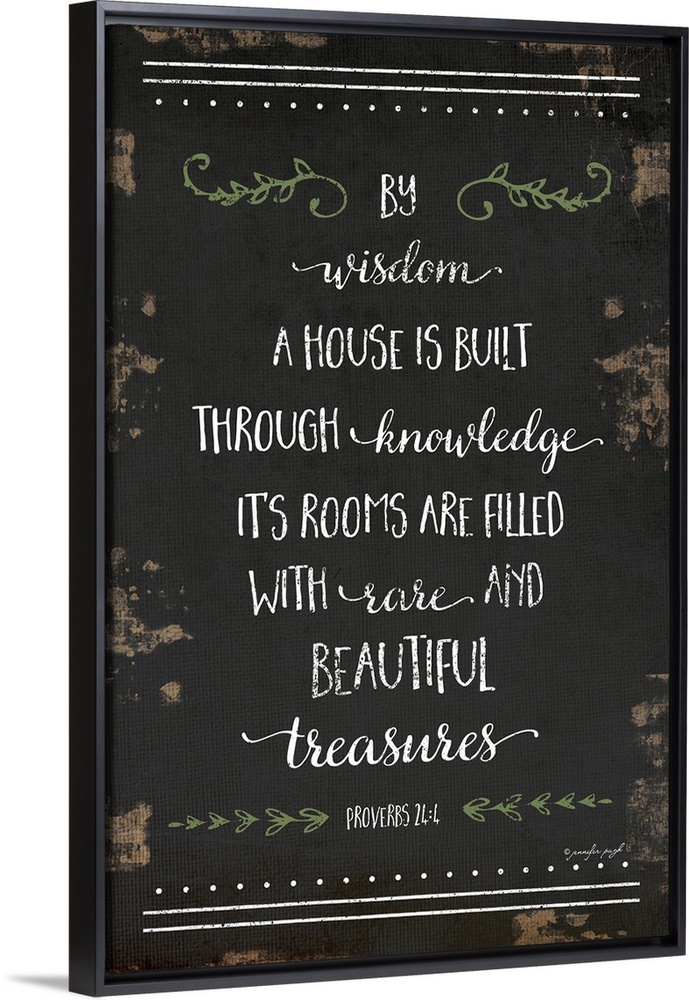 BY
wisdom
A HOUSE IS BUILT
THROUGH knowledge
ITS ROOMS ARE FILLED
WITH rare AND
BEAUTIFUL
treasures
PROVERBS 24:4
© jennifer pugh